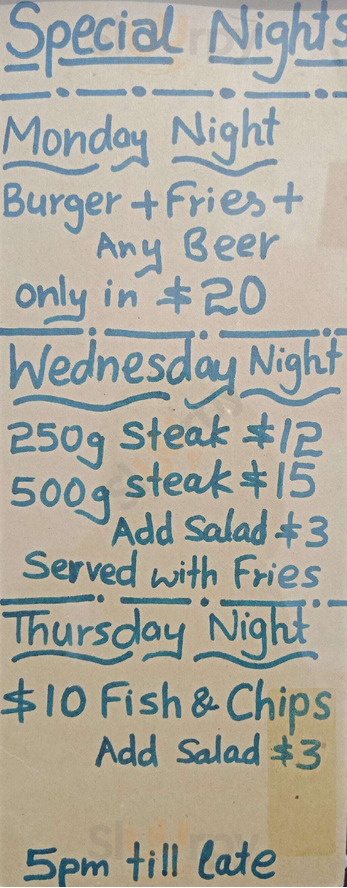 Special Nights
Monday Night
Burger + Fries +
Any Beer
only in $20
Wednesday Night
250g Steak $12
500g steak $15
Add Salad $3
Served with Fries
Thursday Night
$10 Fish & Chips
Add Salad $3
5pm till late